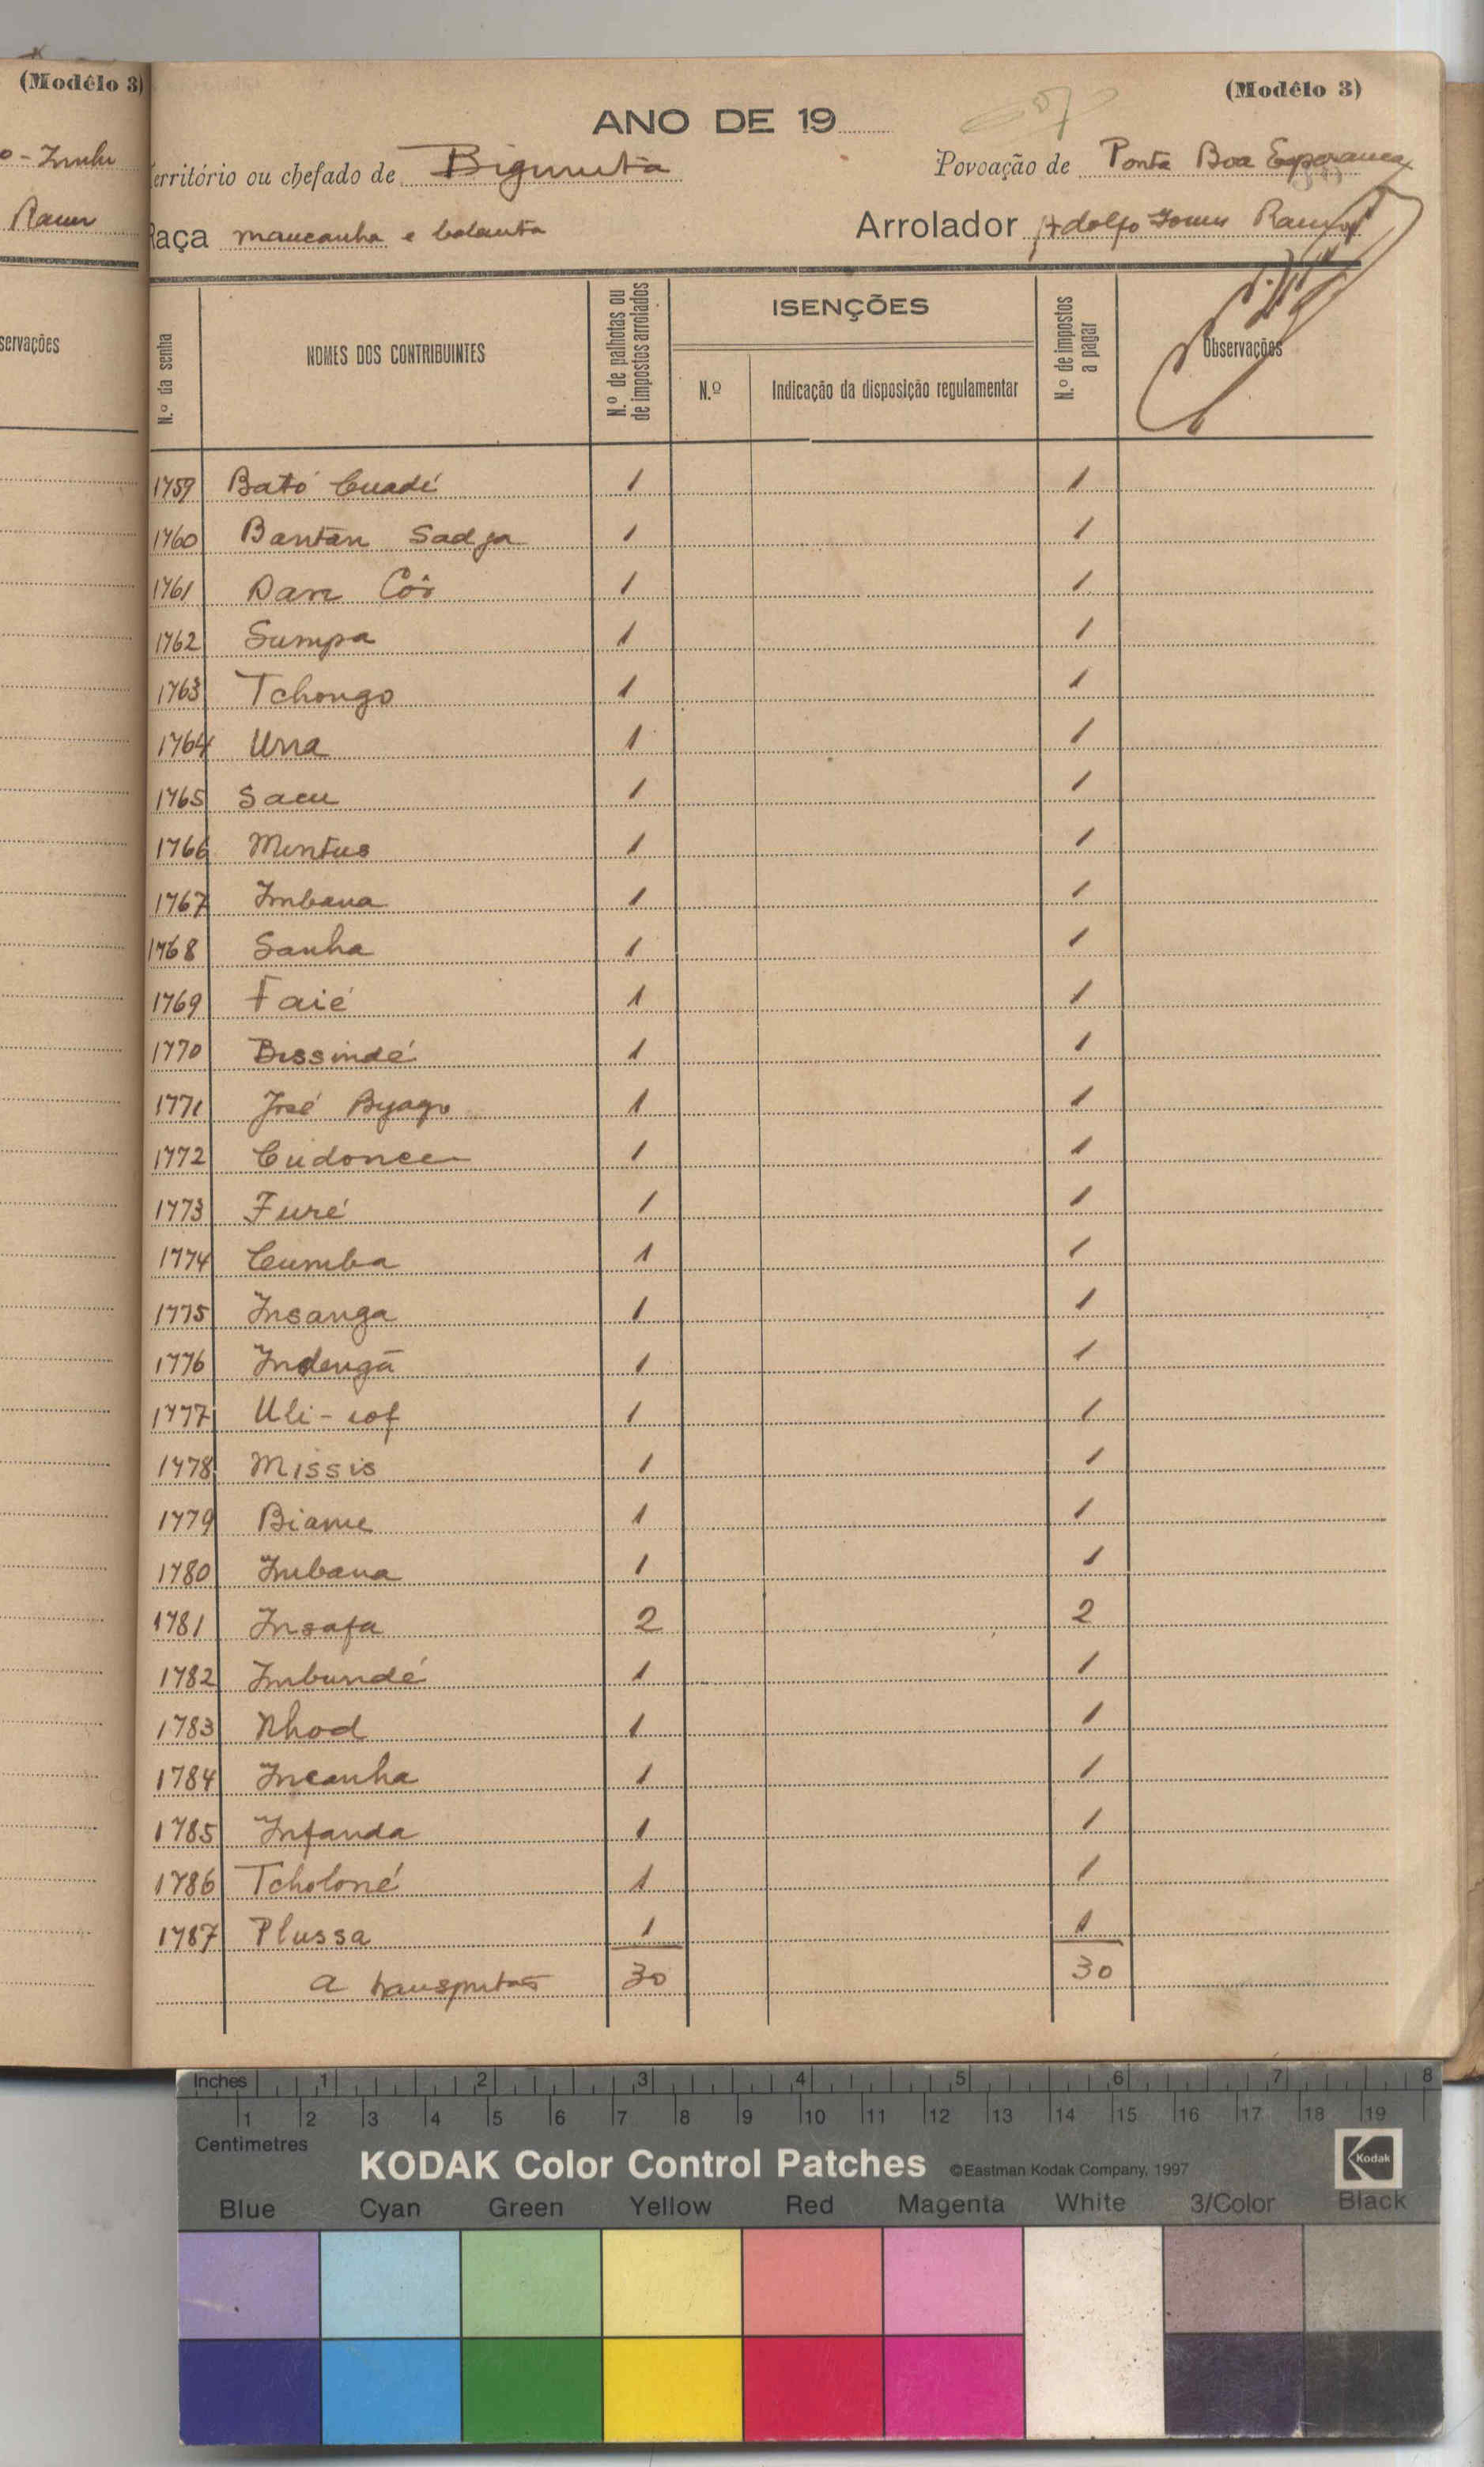 (Modêlo 3)
(Modêlo 3)
ANO DE 19
Território ou chefado de Bigimita Povoação de Ponta Boa Esperança
Raça mancanha e balanta Arrolador Adolfo Gomes Ramos
servações
N.º da senha
NOMES DOS CONTRIBUINTES
N.º de palhotas ou de impostos arrolados
ISENÇÕES
N.º
Indicação da disposição regulamentar
N.º de impostos a pagar
Observações
1759 Bató Cuadé 1 1
1760 Bantan Sadja 1 1
1761 Dane Côi 1 1
1762 Sumpa 1 1
1763 Tchongo 1 1
1764 Una 1 1
1765 Sacu 1 1
1766 Mintus 1 1
1767 Imbana 1 1
1768 Sanha 1 1
1769 Faié 1 1
1770 Bissindé 1 1
1771 José Byago 1 1
1772 Cudonce 1 1
1773 Furé 1 1
1774 Cumba 1 1
1775 Insanga 1 1
1776 Indengã 1 1
1777 Uli-iof 1 1
1778 Missis 1 1
1779 Biame 1 1
1780 Imbana 1 1
1781 Insafa 2 2
1782 Imbundé 1 1
1783 Nhod 1 1
1784 Incanha 1 1
1785 Infanda 1 1
1786 Tcholoné 1 1
1787 Plussa 1 1
a transportar 30 30
Inches 1 2 3 4 5 6 7 8
1 2 3 4 5 6 7 8 9 10 11 12 13 14 15 16 17 18 19
Centimetres
KODAK Color Control Patches ©Eastman Kodak Company, 1997 Kodak
Blue Cyan Green Yellow Red Magenta White 3/Color Black